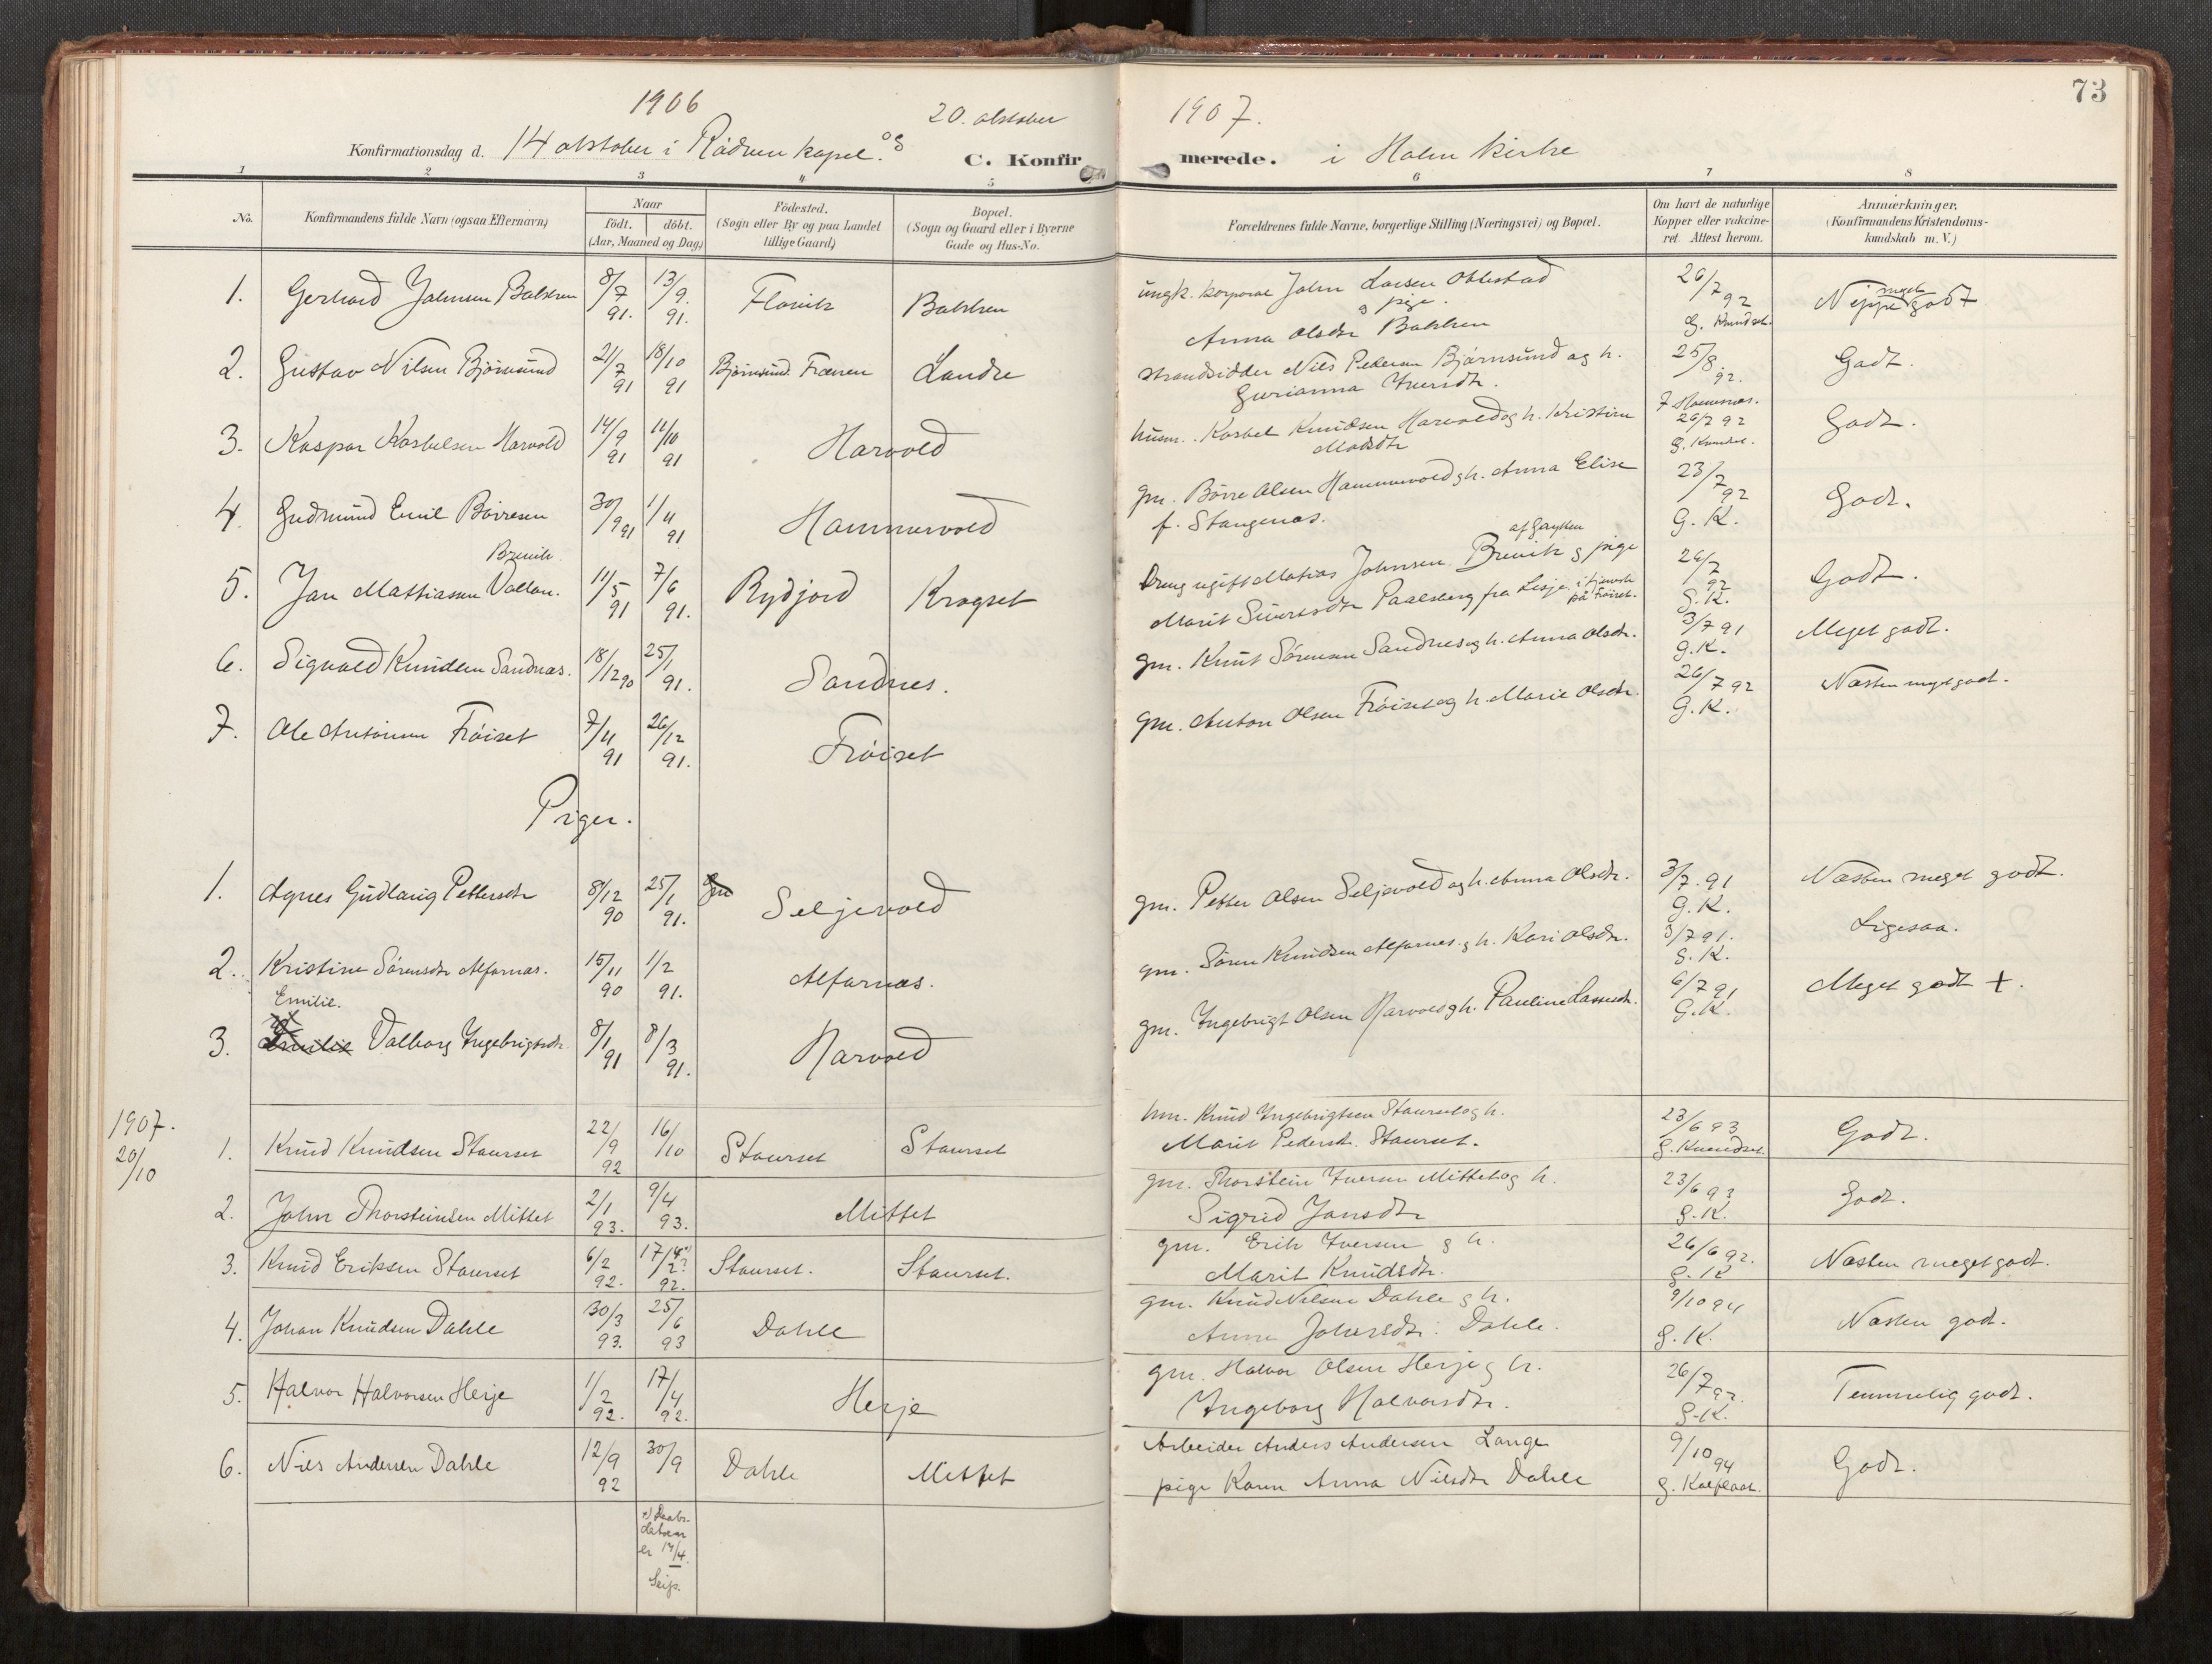 73
1906
20. oktober
1907.
Konfirmationsdag d. 14 oktober i Rødven kapel. og
C. Konfirmerede. i Holm kirke
1 2 3 4 5 6 7 8
No.
Konfirmandens fulde Navn (ogsaa Efternavn)
Naar
født. døbt.
(Aar, Maaned og Dag)
Fødested.
(Sogn eller By og paa Landet
tillige Gaard)
Bopæl.
(Sogn og Gaard eller i Byerne
Gade og Hus-No.
Forældrenes fulde Navne, borgerlige Stilling (Næringsvei) og Bopæl.
Om havt de naturlige
Kopper eller vakcine-
ret. Attest herom.
Anmærkninger.
(Konfirmandens Kristendoms-
kundskab m. V.)
1. Gerhard Johnsen 8/7 91. 13/9. 91. Flovik
ungk. korporal John Larsen
g pige.
Anna Olsdtr
26/7 92
G. Knudsen.
Neppe meget godt
2. Gustav Nilsen Bjørnsund 21/7 91 18/10 91 Bjørnsund. Frænen Landre
strandsidder Nils Pedersen Bjørnsund og h.
Gurianna Iversdtr.
25/8 92.
Godt.
3. Kaspar Harvold 14/9 91 11/10 91 Harvold
husm. Knudsen Harvold og h. Kristine
26/7 92
G. Knudsen.
Godt.
4. Gudmund Emil Børresen 30/9 91 1/11 91 Hammervold
gm. Børre Olsen Hammervold g h. Anna Elise
f. Stangenæs.
23/7 92
G. K.
Godt.
Brevik
5. Jan Mathiassen 11/5 91 7/6 91. Rydjord Krogset
Dreng ugift Mathias Johnsen Brevik g pige
Marit Sivertsdtr fra Lesje, i tjeneste
på Frøiset.
26/7 92
G. K.
Godt.
6. Sigvald Knudsen Sandnæs. 18/12 90 25/1 91. Sandnes.
gm. Knut Sørensen Sandnes og h. Anna Olsdtr.
3/7 91
G. K.
Meget godt.
7. Ole Antonsen Frøiset 7/11 91 26/12 91. Frøiset
gm. Anton Olsen Frøiset og h. Marie Olsdtr.
26/7 92
G. K.
Næsten meget godt.
Piger.
1. Agnes Gudlaug Pettersdtr 8/12 90 25/1 91. Seljevold
gm. Petter Olsen Seljevold og h. Anna Olsdtr.
3/7. 91
G. K.
Næsten meget godt.
2. Kristine Sørensdtr Alfarnæs. 15/11 90 1/2 91. Alfarnæs.
gm. Søren Knudsen Alfarnes. g h. Kari Olsdtr.
3/7 91.
G. K.
Ligesaa.
Emilie.
3. Valborg Ingebrigtsdtr 8/1 91 8/3 91. Harvold
gm. Ingebrigt Olsen Harvold g h. Pauline Lassesdtr.
6/7 91
G. K.
Meget godt +.
1907.
20/10
1. Knud Knudsen Staurset 22/9 92 16/10 Staurset Staurset
hm. Knud Ingebrigtsen Staurset og h.
Marit Pedersdt. Staurset.
23/6 93
G. Knudsen.
Godt.
2. John Thorsteinsen Mittet 2/1 93. 9/4 93. Mittet
gm. Thorstein Iversen Mittet og h.
Sigrid Jansdtr
23/6 93
G. K.
Godt.
3. Knud Eriksen Staurset 6/2 92. 17/4 92. Staurset. Staurset.
gm. Erik Iversen g h.
Marit Knudsdtr.
26/6 92.
G. K
Næsten meget godt.
4. Johan Knudsen Dahle 30/3 93. 25/6 93 Dahle
gm. Knud Nilsen Dahle g h.
Anne Johansdtr. Dahle.
9/10 94
G. K.
Næsten godt.
5. Halvor Halvorsen Herje 1/2 92. 17/4 92. Herje
gm. Halvor Olsen Herje g h.
Ingeborg Halvorsdtr.
26/7 92
G. K.
Temmelig godt.
6. Nils Andersen Dahle 12/9 92 30/9 Dahle Mittet
Arbeider Anders Andersen Lange
pige Karen Anna Nilsdtr Dahle
9/10 94
Godt.
x) Daabs-
datoen
er 17/4.